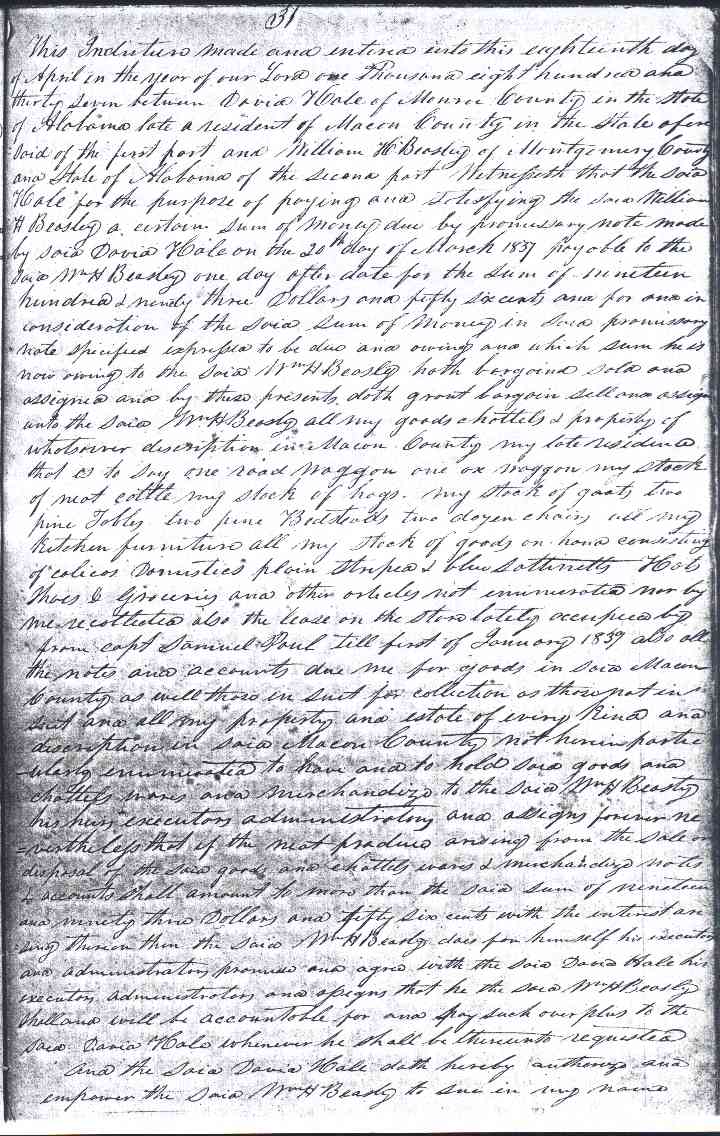 31
This Indenture made and entered into this eighteenth day
of April in the year of our Lord one Thousand eight hundred and
thirty seven between David Hale of Monroe County in the State
of Alabama late a resident of Macon County in the State afore
said of the first part and William H Beasley of Montgomery County
and State of Alabama of the second part Witnesseth that the said
Hale for the purpose of paying and satisfying the said William
H Beasley a certain sum of money due by promissory note made
by said David Hale on the 20th day of March 1837 payable to the
said Wm H Beasley one day after date for the sum of nineteen
hundred & ninety three Dollars and fifty six cents and for and in
consideration of the said sum of money in said promissory
note specified expressed to be due and owing and which sum he is
now owing to the said Wm H Beasley hath bargaind sold and
assigned and by these presents doth grant bargain sell and assign
unto the said Wm H Beasly all my goods chattels & property of
whatsoever discription in Macon County my late residence
that is to say one road waggon one ox waggon my stock
of neat cattle my stock of hogs. my stock of goats two
pine Tables two pine Bedsteads two dozen chairs all my
kitchen furniture all my stock of goods on hand consisting
of calicos Domestics plain stripea & blue sattinetts Hats
Shoes & Groceries and other articles not enumerated nor by
me recollected also the lease on the store lately occupied by
from capt Samuel Paul till first of January 1839 also all
the notes and accounts due me for goods in said Macon
County as well those in suit for collection as those not in
suit and all my property and estate of every kind and
discription in said Macon County not herein partic
ularly enumerated to have and to hold said goods and
chattels wares and merchandize to the said Wm H Beasly
his heirs executors administrators and assigns forever ne
=vertheless that if the neat produce arising from the sale or
disposal of the said goods and chattels wares & merchandize notes
& accounts shall amount to more than the said sum of nineteen
and ninety three Dollars and fifty six cents with the interest ari
sing thereon then the said Wm H Beasly does for himself his executors
and administrators promise and agree with the said David Hale his
executors administrators and assigns that he the said Wm H Beasly
shall and will be accountable for and pay such over plus to the
said David Hale whenever he shall be thereunto requested
And the said David Hale doth hereby authorize and
empower the said Wm H Beasly to sue in my name